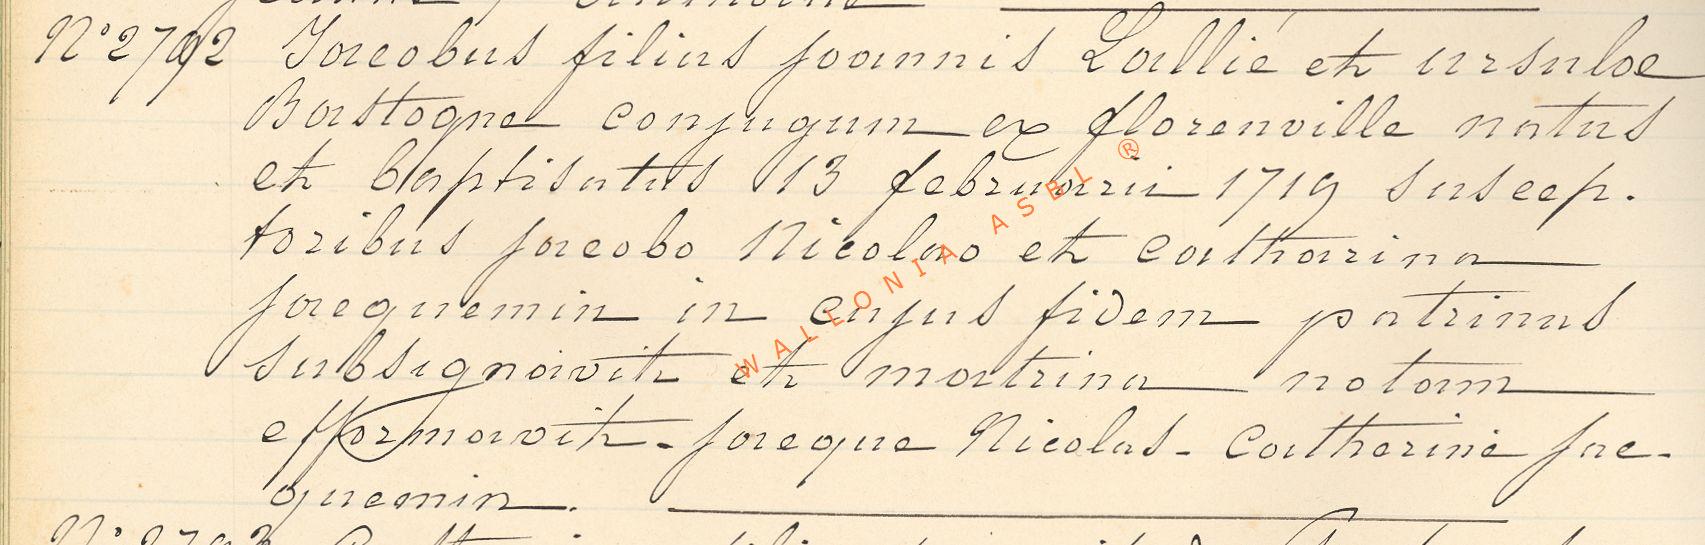 N° 2792 Jacobus filius joannis Lallié et ursulae
Bastogne conjugum ex florenville natus
et baptisatus 13 februarii 1719 suscep.
toribus jacobo Nicolao et catharina
jacquemin in cujus fidem patrinus
subsignavit et matrina notam
efformavit - jacque Nicolas - catherine jac-
quemin.
WALLONIA ASBL ®